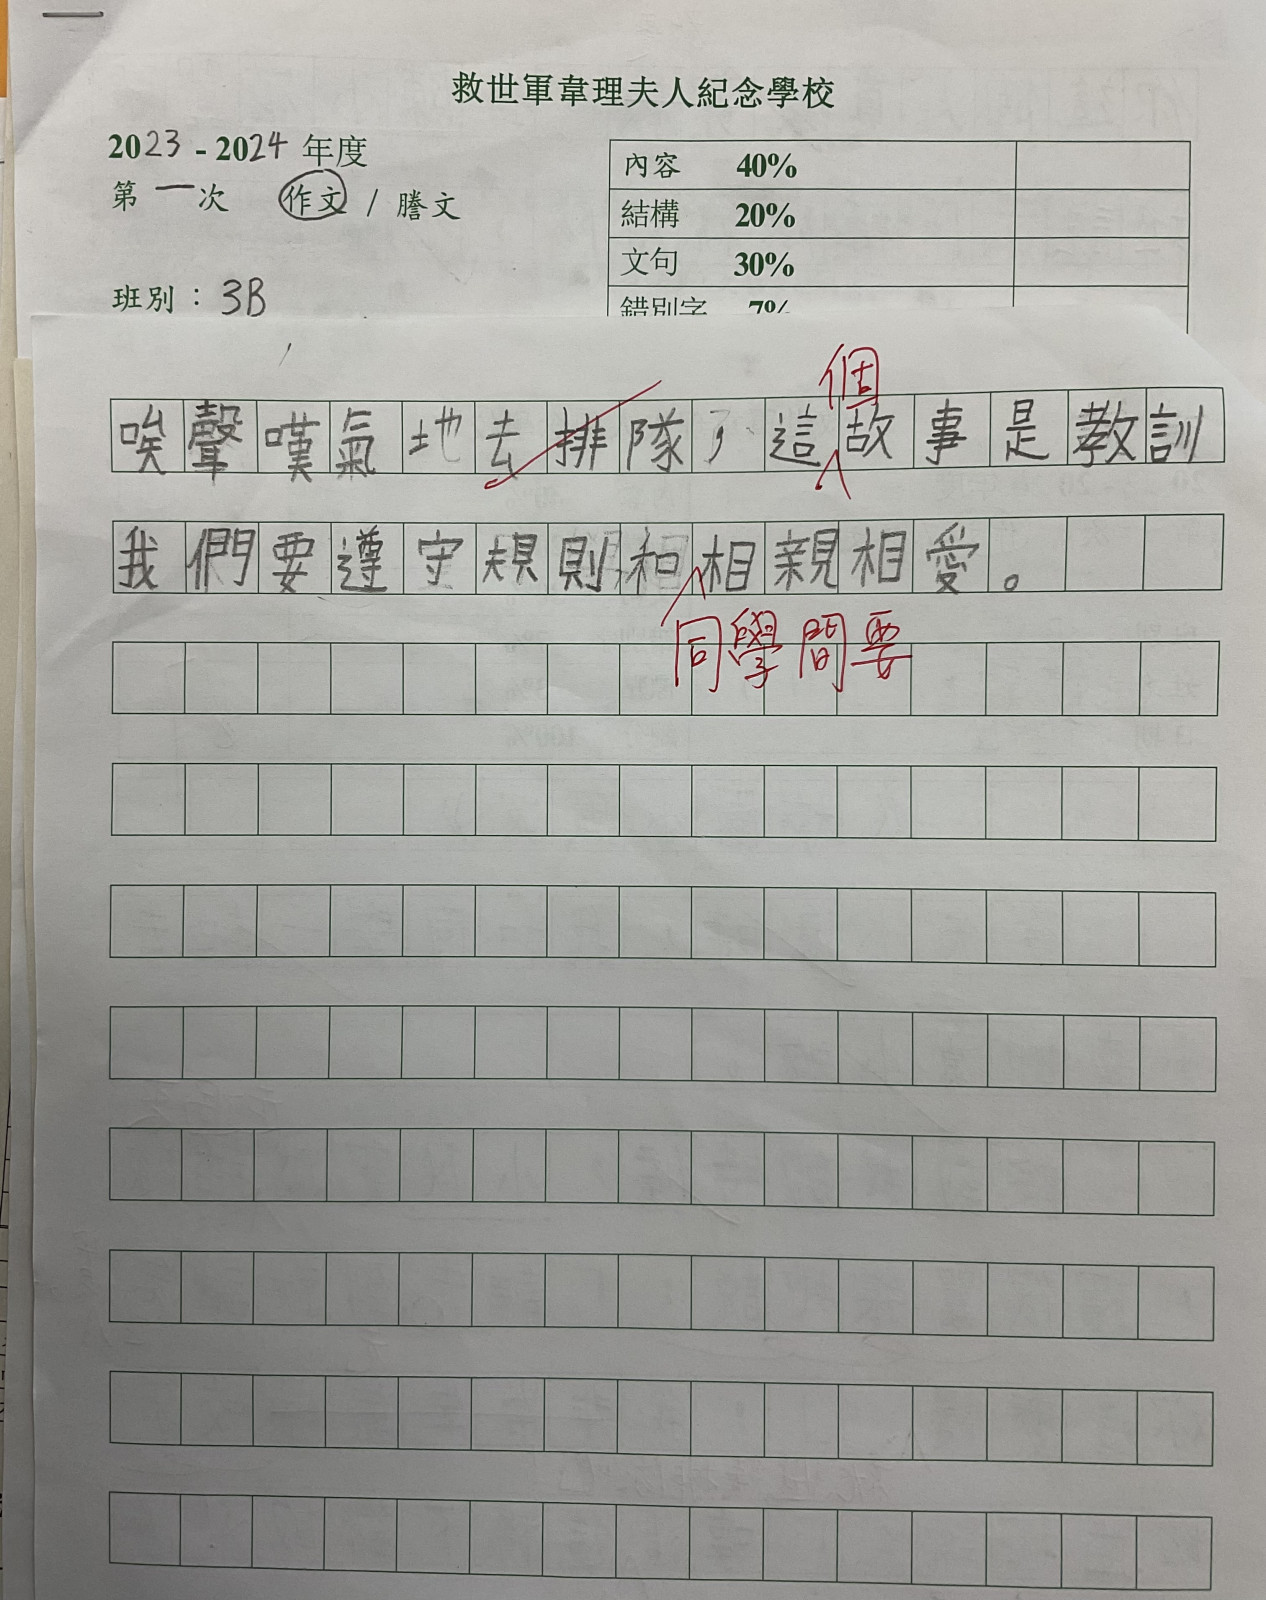 救世軍韋理夫人紀念學校
2023 - 2024 年度
第一次 作文 / 謄文
班別：3B
內容 40%
結構 20%
文句 30%
錯別字 7%
個
唉聲嘆氣地去排隊了這故事是教訓
我們要遵守規則和相親相愛。
同學間要